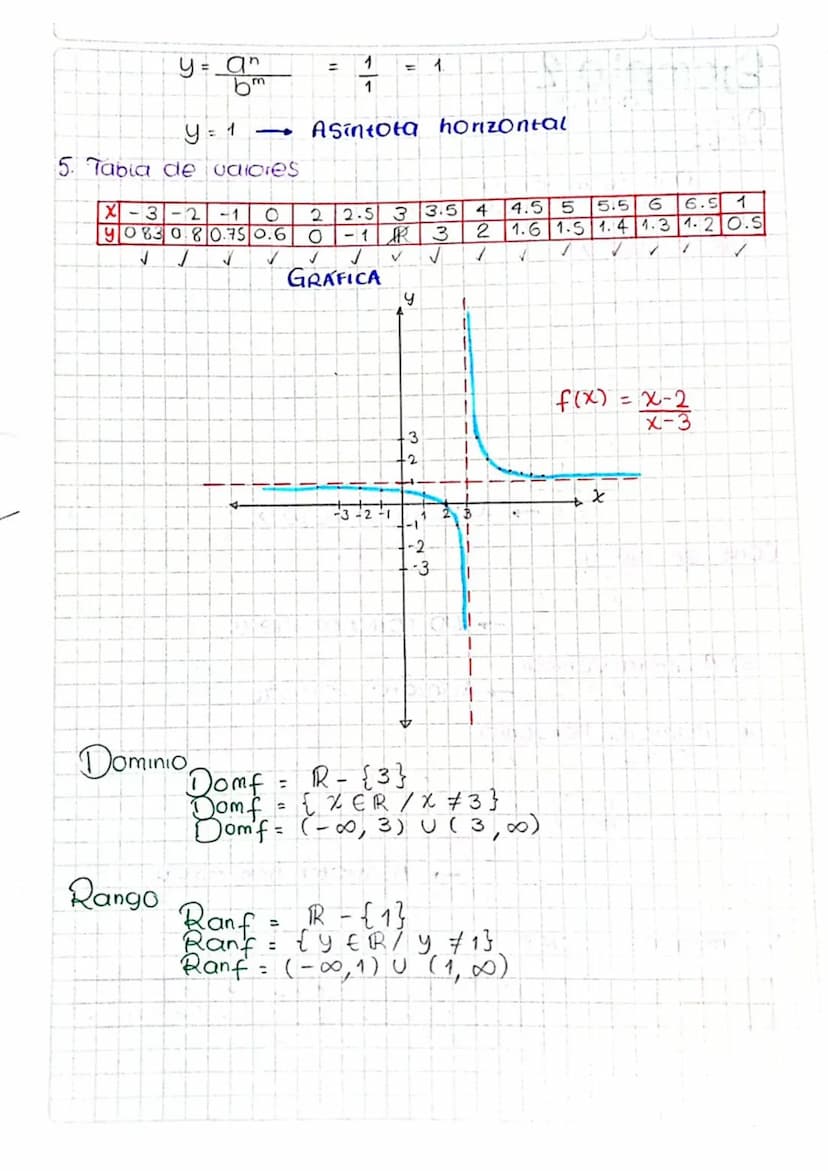 y = aⁿ / bᵐ = 1/1 = 1
y = 1 → Asíntota horizontal
5. Tabla de valores
x -3 -2 -1 0 2 2.5 3 3.5 4 4.5 5 5.5 6 6.5 1
y 0 83 0.8 0.75 0.6 0 -1 3 2 1.6 1.5 1.4 1.3 1.2 0.5
✓ ✓ ✓ ✓ ✓ ✓ ✓ ✓ ✓ ✓ ✓ ✓ ✓ ✓ ✓
GRÁFICA
y
f(x) = x-2 / x-3
3
2
1
-3 -2 -1 1 2 3 x
-1
-2
-3
Dominio
Domf = ℝ - {3}
Domf = { x ∈ ℝ / x ≠ 3 }
Domf = (-∞, 3) ∪ (3, ∞)
Rango
Ranf = ℝ - {1}
Ranf = { y ∈ ℝ / y ≠ 1}
Ranf = (-∞, 1) ∪ (1, ∞)